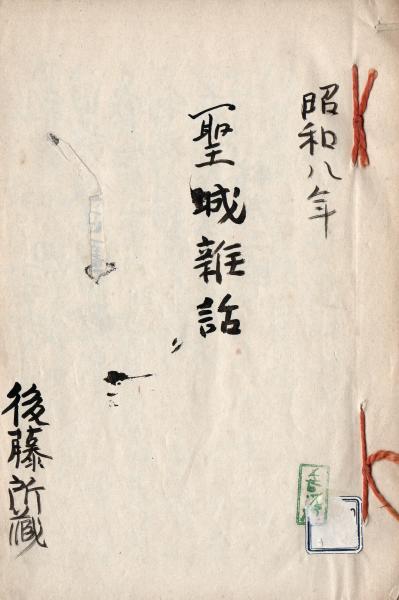 昭和八年
聖城雑話
後藤所蔵